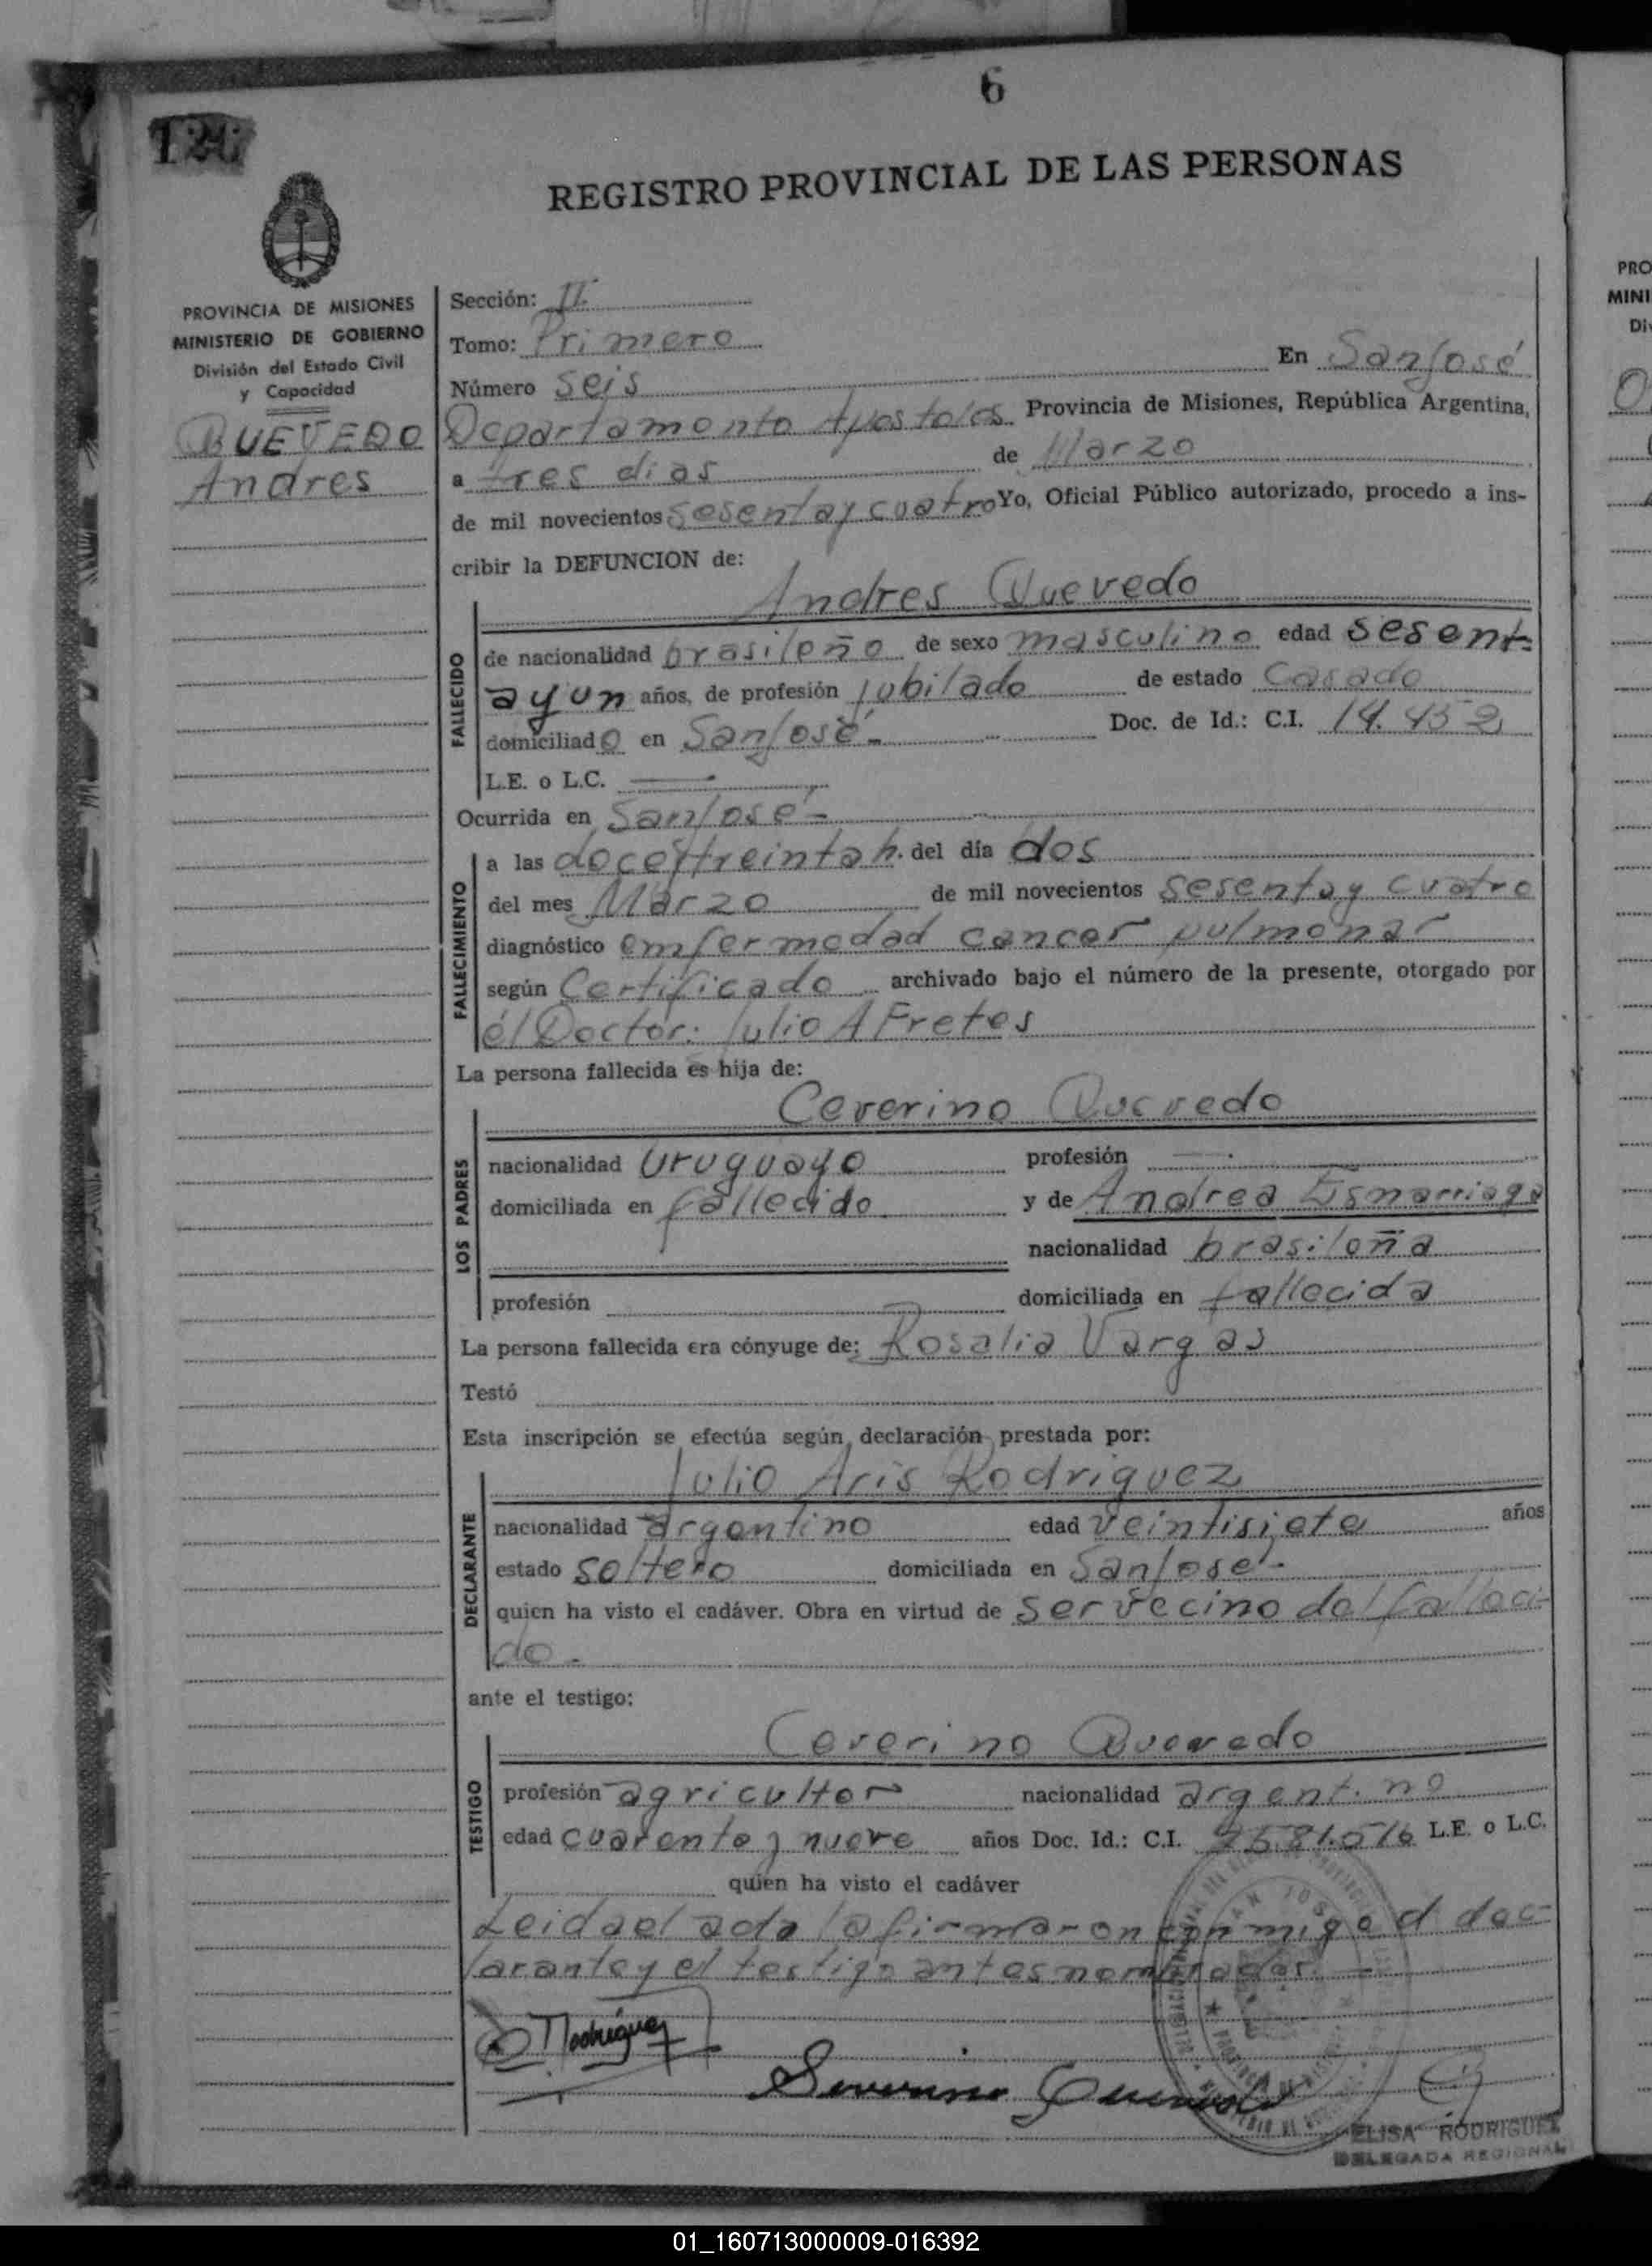 6
REGISTRO PROVINCIAL DE LAS PERSONAS
PROVINCIA DE MISIONES
MINISTERIO DE GOBIERNO
División del Estado Civil
y Capacidad
QUEVEDO
Andres
Sección: II
Tomo: Primero
Número seis En San José
Departamento Apostoles Provincia de Misiones, República Argentina,
a tres dias de Marzo
de mil novecientos sesenta y cuatro Yo, Oficial Público autorizado, procedo a ins-
cribir la DEFUNCION de:
Andres Quevedo
FALLECIDO
de nacionalidad brasileño de sexo masculino edad sesent-
a y un años, de profesión jubilado de estado Casado
domiciliado en San José - Doc. de Id.: C.I. 14.452
L.E. o L.C. —
Ocurrida en San José -
FALLECIMIENTO
a las doce y treinta h. del día dos
del mes Marzo de mil novecientos sesenta y cuatro
diagnóstico emfermedad cancer pulmonar
según Certificado archivado bajo el número de la presente, otorgado por
él Doctor: Julio A Fretes
La persona fallecida es hija de:
Ceverino Quevedo
LOS PADRES
nacionalidad Uruguayo profesión —
domiciliada en fallecido y de Andrea Esmarriaga
nacionalidad brasileña
profesión domiciliada en fallecida
La persona fallecida era cónyuge de: Rosalia Vargas
Testó
Esta inscripción se efectúa según declaración prestada por:
Julio Aris Rodriguez
DECLARANTE
nacionalidad argentino edad veintisiete años
estado soltero domiciliada en San José -
quien ha visto el cadáver. Obra en virtud de ser vecino del falleci-
do -
ante el testigo:
Ceverino Quevedo
TESTIGO
profesión agricultor nacionalidad argentino
edad cuarenta y nueve años Doc. Id.: C.I. 2581.516 L.E. o L.C.
quien ha visto el cadáver
Leida el acta la firmaron conmigo el dec-
larante y el testigo antes nombrados. -
Rodriguez
Severino Quevedo
ELISA RODRIGUEZ
DELEGADA REGIONAL
PRO
MINI
01_160713000009-016392